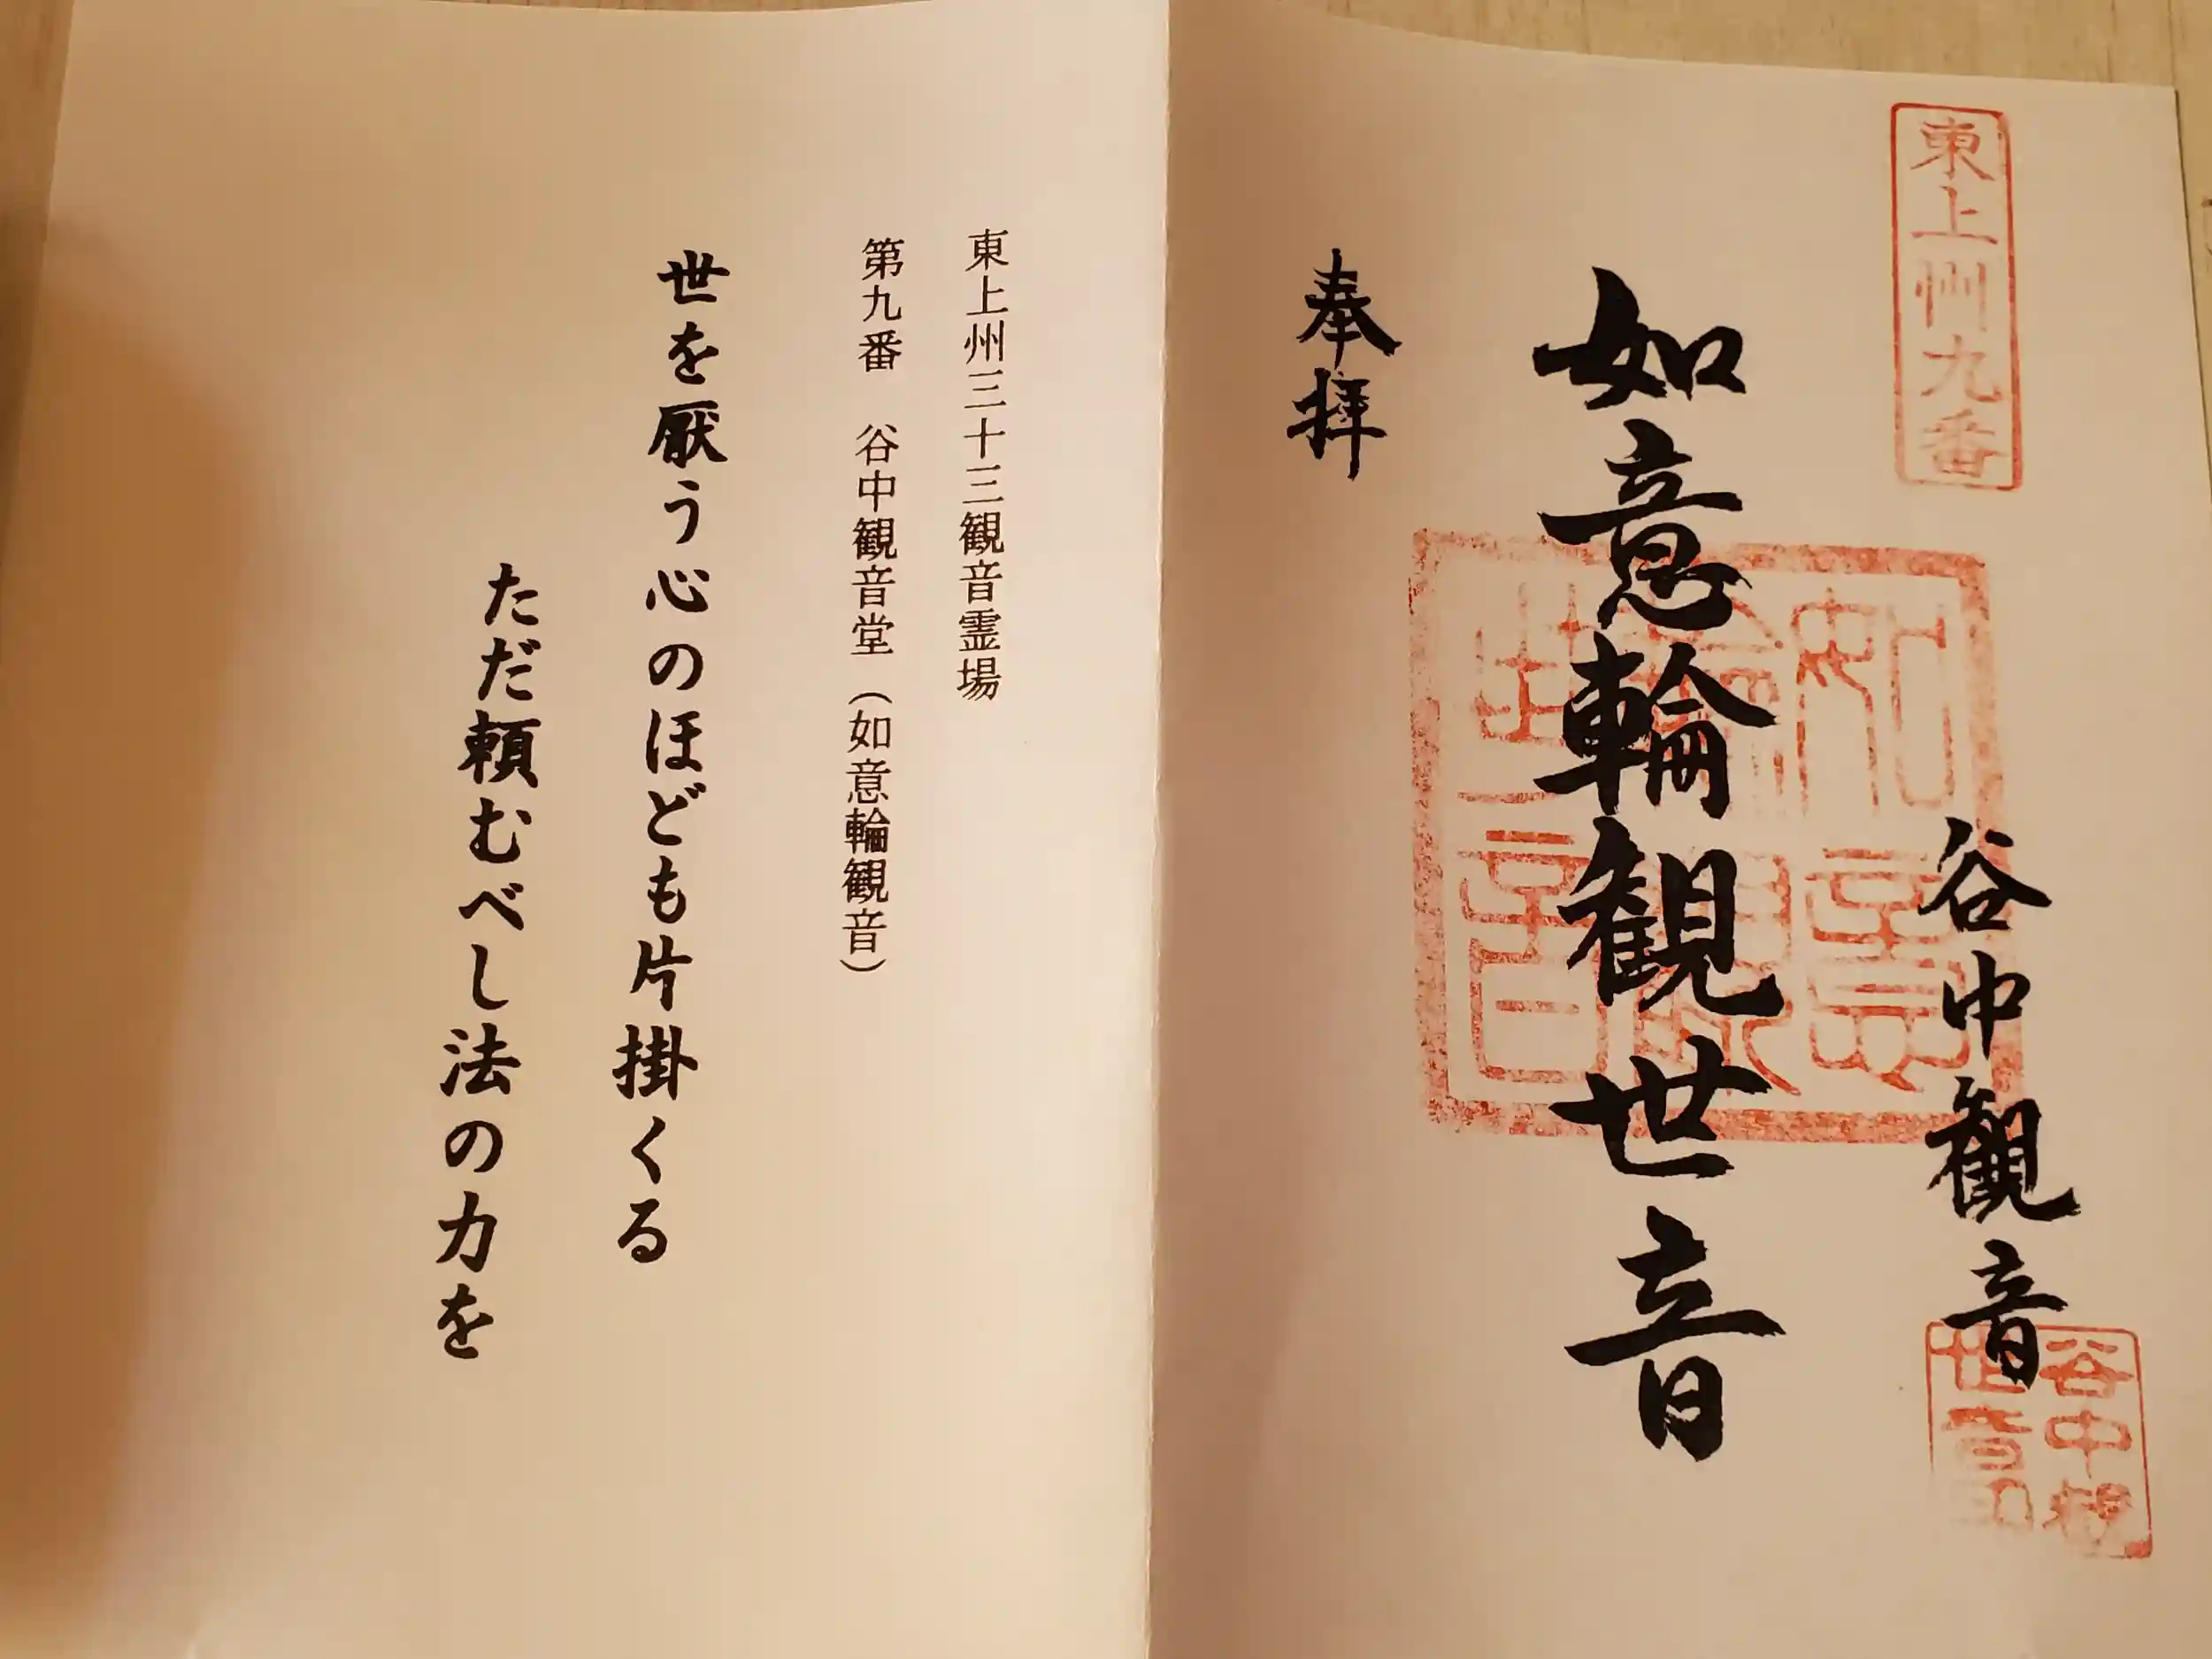 東上州九番
谷中観音
如意輪観世音
奉拝
如意輪観世音
谷中観
世音印
東上州三十三観音霊場
第九番 谷中観音堂（如意輪観音）
世を厭う心のほども片掛くる
ただ頼むべし法の力を